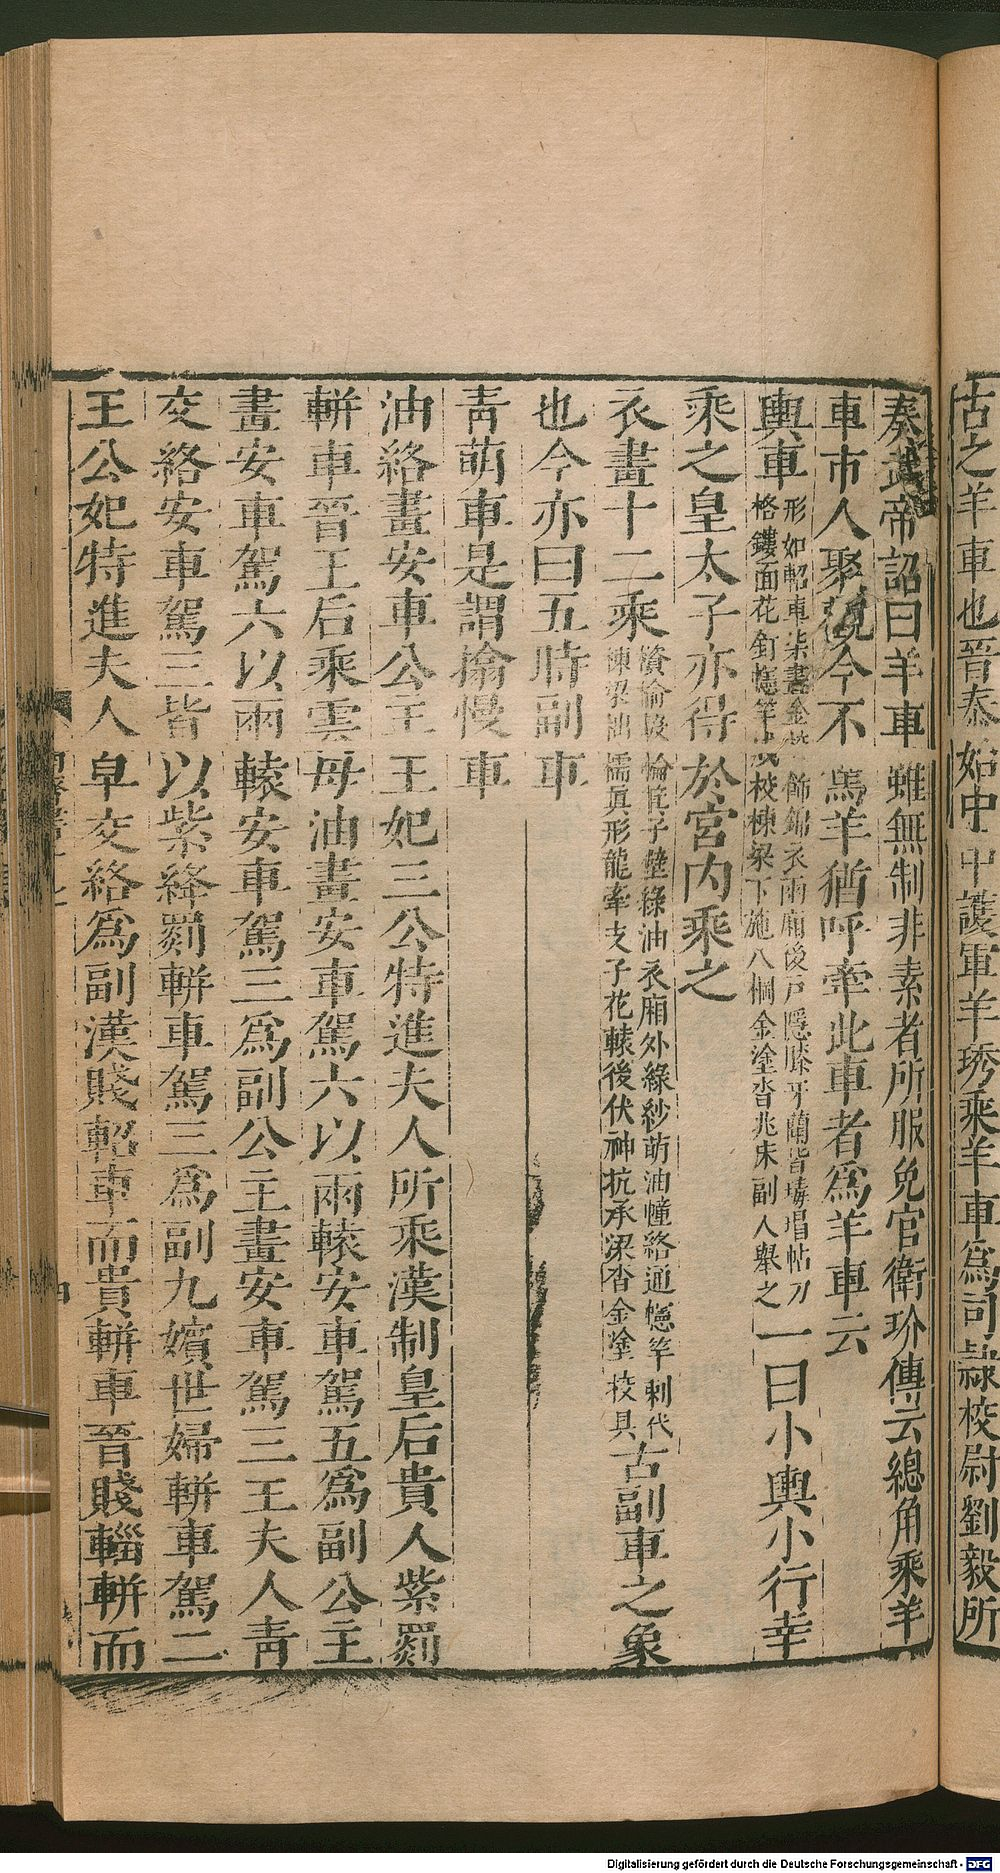 古之羊車也晉泰始中中護軍羊琇乘羊車爲司隷校尉劉毅所
奏武帝詔曰羊車雖無制非素者所服免官衛玠傳云總角乘羊
車市人聚觀今不駕羊猶呼牽此車者爲羊車云
輿車
形如軺車柒畫金校飾錦衣兩廂後戸隱膝牙蘭皆瑇瑁帖刀
格鏤面花釘幰竿成校棟梁下施八㭎金塗沓兆床副人舉之
一曰小輿小行幸
乘之皇太子亦得於宮內乘之
衣畫十二乘
輪箕子壁綠油衣廂外綠紗萌油幢絡通幰竿刺代
棟梁油
眞形龍牽支子花轅後伏神抗承梁沓金塗校具
古副車之象
也今亦曰五時副車
靑萌車是謂搚幔車
油絡畫安車公主王妃三公特進夫人所乘漢制皇后貴人紫罽
軿車晉王后乘雲母油畫安車駕六以兩轅安車駕五爲副公主
畫安車駕六以兩轅安車駕三爲副公主畫安車駕三王夫人靑
交絡安車駕三皆以紫絳罽軿車駕三爲副九嬪世婦軿車駕二
王公妃特進夫人皁交絡爲副漢賤軺車而貴軿車晉賤輜軿而
Digitalisierung gefördert durch die Deutsche Forschungsgemeinschaft - DFG